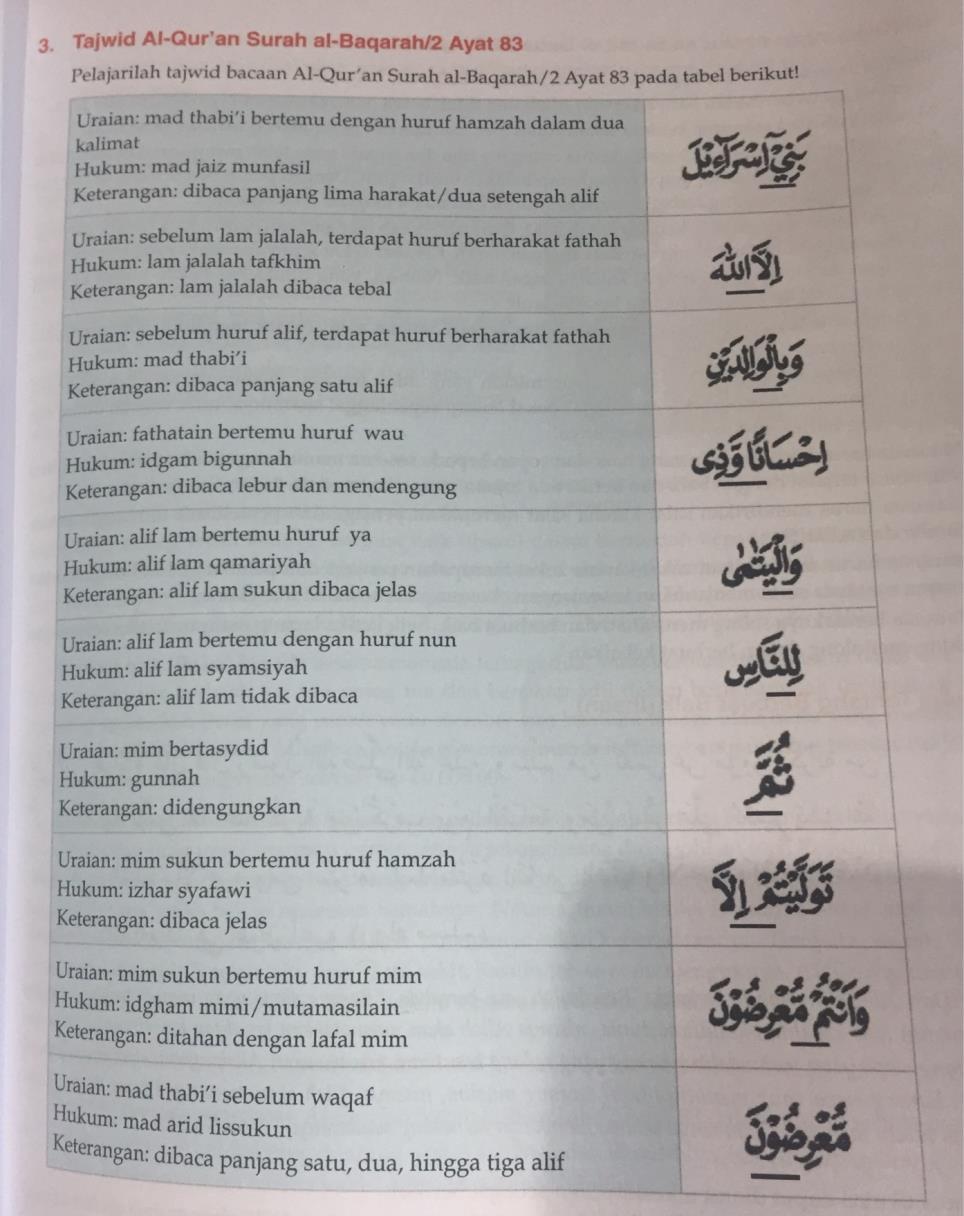 3. Tajwid Al-Qur'an Surah al-Baqarah/2 Ayat 83
Pelajarilah tajwid bacaan Al-Qur'an Surah al-Baqarah/2 Ayat 83 pada tabel berikut!
Uraian: mad thabi'i bertemu dengan huruf hamzah dalam dua
kalimat
Hukum: mad jaiz munfasil
Keterangan: dibaca panjang lima harakat/dua setengah alif
بَنِيْٓ اِسْرَاۤءِيْلَ
Uraian: sebelum lam jalalah, terdapat huruf berharakat fathah
Hukum: lam jalalah tafkhim
Keterangan: lam jalalah dibaca tebal
اِلَّا اللّٰهَ
Uraian: sebelum huruf alif, terdapat huruf berharakat fathah
Hukum: mad thabi'i
Keterangan: dibaca panjang satu alif
وَبِالْوَالِدَيْنِ
Uraian: fathatain bertemu huruf wau
Hukum: idgam bigunnah
Keterangan: dibaca lebur dan mendengung
اِحْسَانًا وَّذِى
Uraian: alif lam bertemu huruf ya
Hukum: alif lam qamariyah
Keterangan: alif lam sukun dibaca jelas
وَالْيَتٰمٰى
Uraian: alif lam bertemu dengan huruf nun
Hukum: alif lam syamsiyah
Keterangan: alif lam tidak dibaca
لِلنَّاسِ
Uraian: mim bertasydid
Hukum: gunnah
Keterangan: didengungkan
ثُمَّ
Uraian: mim sukun bertemu huruf hamzah
Hukum: izhar syafawi
Keterangan: dibaca jelas
تَوَلَّيْتُمْ اِلَّا
Uraian: mim sukun bertemu huruf mim
Hukum: idgham mimi/mutamasilain
Keterangan: ditahan dengan lafal mim
وَاَنْتُمْ مُّعْرِضُوْنَ
Uraian: mad thabi'i sebelum waqaf
Hukum: mad arid lissukun
Keterangan: dibaca panjang satu, dua, hingga tiga alif
مُّعْرِضُوْنَ